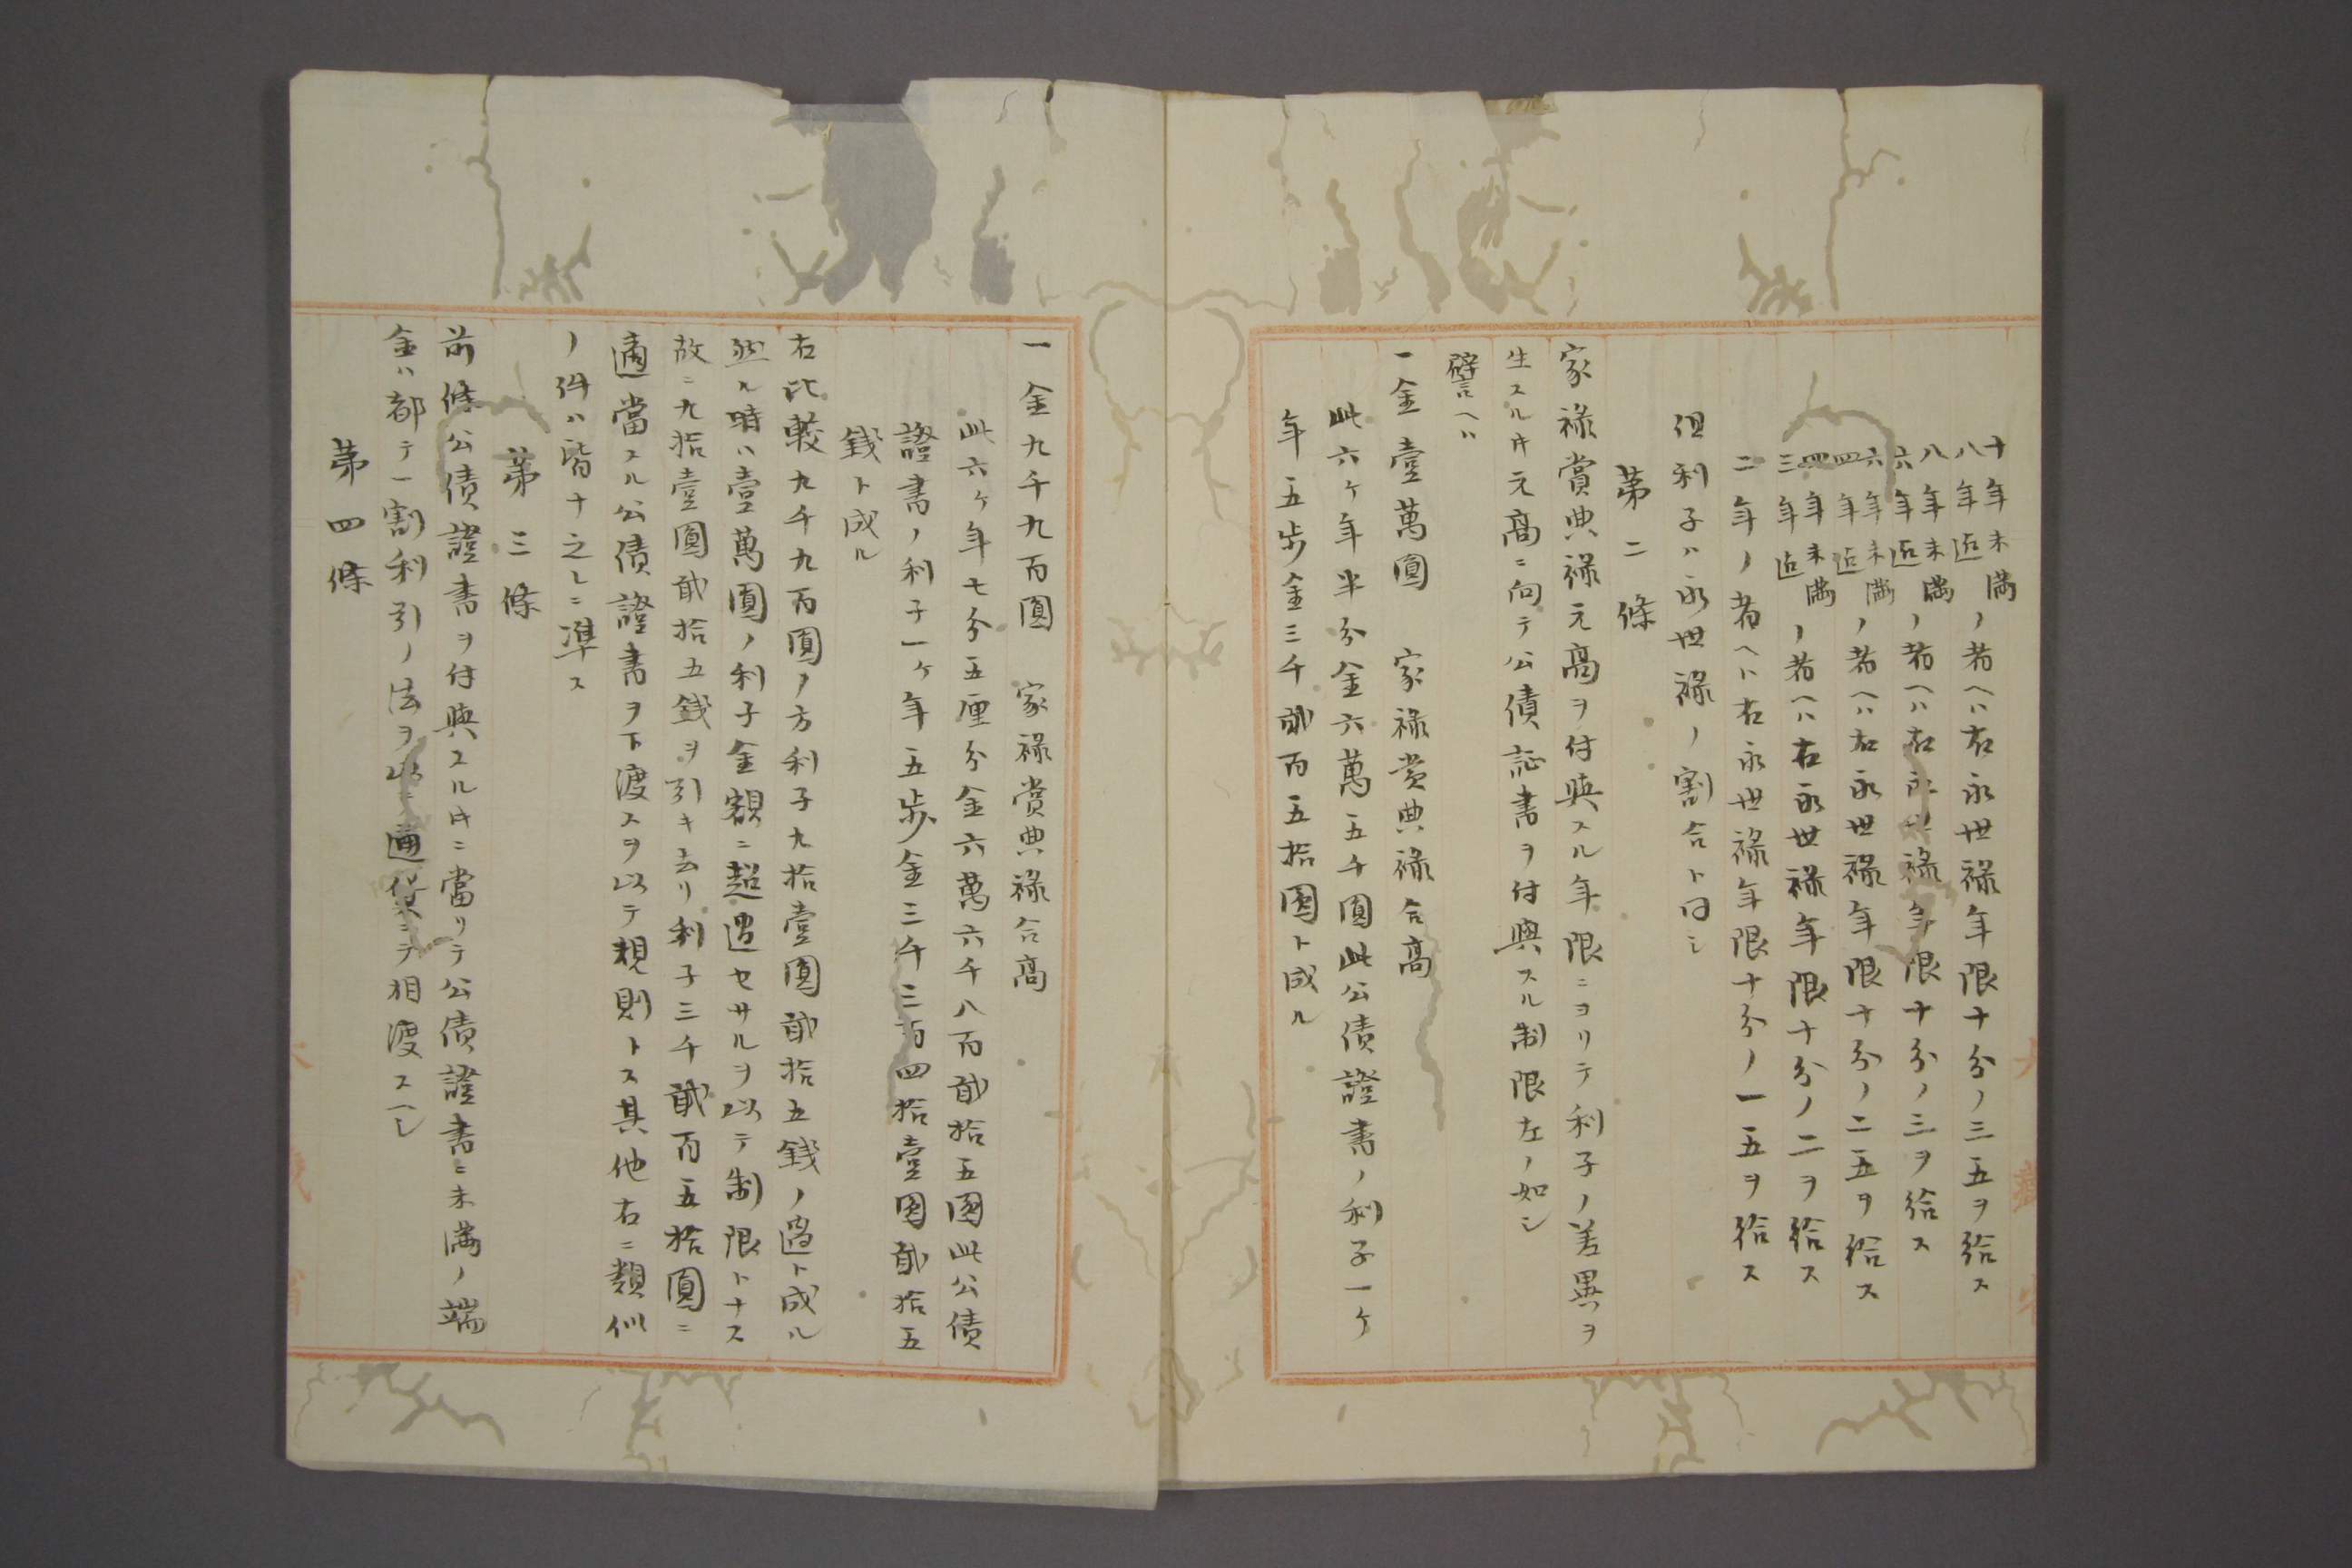 十年未満八年迄ノ者ヘハ右永世禄年限十分ノ三五ヲ給ス
八年未満六年迄ノ者ヘハ右永世禄年限十分ノ三ヲ給ス
六年未満四年迄ノ者ヘハ右永世禄年限十分ノ二五ヲ給ス
四年未満三年迄ノ者ヘハ右永世禄年限十分ノ二ヲ給ス
二年ノ者ヘハ右永世禄年限十分ノ一五ヲ給ス
但利子ハ永世禄ノ割合ト同シ
第二條
家禄賞典禄元高ヲ付與スル年限ニヨリテ利子ノ差異ヲ
生スルヰ元高ニ向テ公債証書ヲ付與スル制限左ノ如シ
譬ヘハ
一金壹萬圓 家禄賞典禄合高
此六ヶ年半分金六萬五千圓此公債證書ノ利子一ヶ
年五歩金三千貳百五拾圓ト成ル
一金九千九百圓 家禄賞典禄合高
此六ヶ年七分五厘分金六萬六千八百貳拾五圓此公債
證書ノ利子一ヶ年五歩金三千三百四拾壹圓貳拾五
銭ト成ル
右比較九千九百圓ノ方利子九拾壹圓貳拾五銭ノ過ト成ル
然ル時ハ壹萬圓ノ利子金額ニ超過セサルヲ以テ制限トナス
故ニ九拾壹圓貳拾五銭ヲ引キ去リ利子三千貳百五拾圓ニ
適當スル公債證書ヲ下渡スヲ以テ規則トス其他右ニ類似
ノ件ハ皆ナ之レニ準ス
第三條
前條公債證書ヲ付與スルヰニ當リテ公債證書ニ未満ノ端
金ハ都テ一割利引ノ法ヲ以テ通貨ニテ相渡スヘシ
第四條